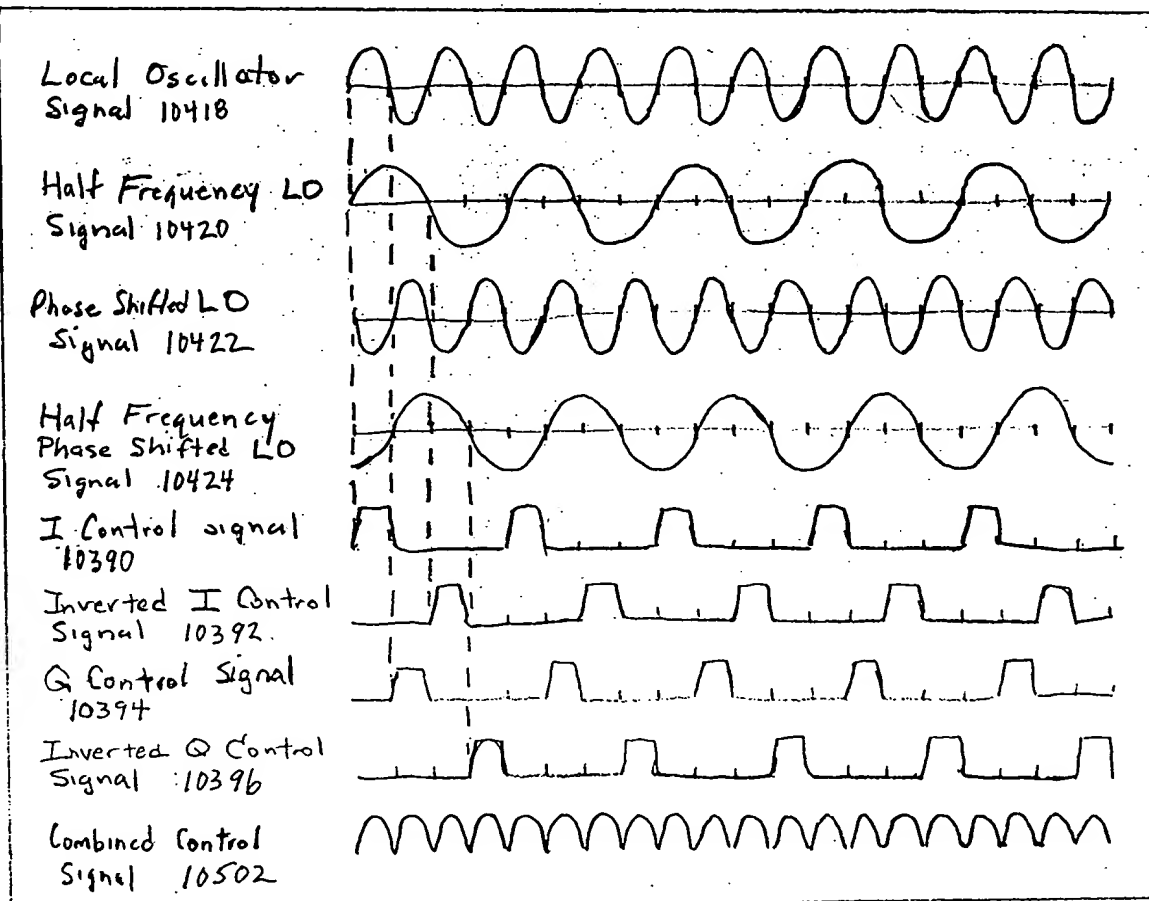 Local Oscillator
Signal 10418
Half Frequency LO
Signal 10420
Phase Shifted LO
Signal 10422
Half Frequency
Phase Shifted LO
Signal 10424
I Control signal
10390
Inverted I Control
Signal 10392
Q Control Signal
10394
Inverted Q Control
Signal 10396
Combined Control
Signal 10502